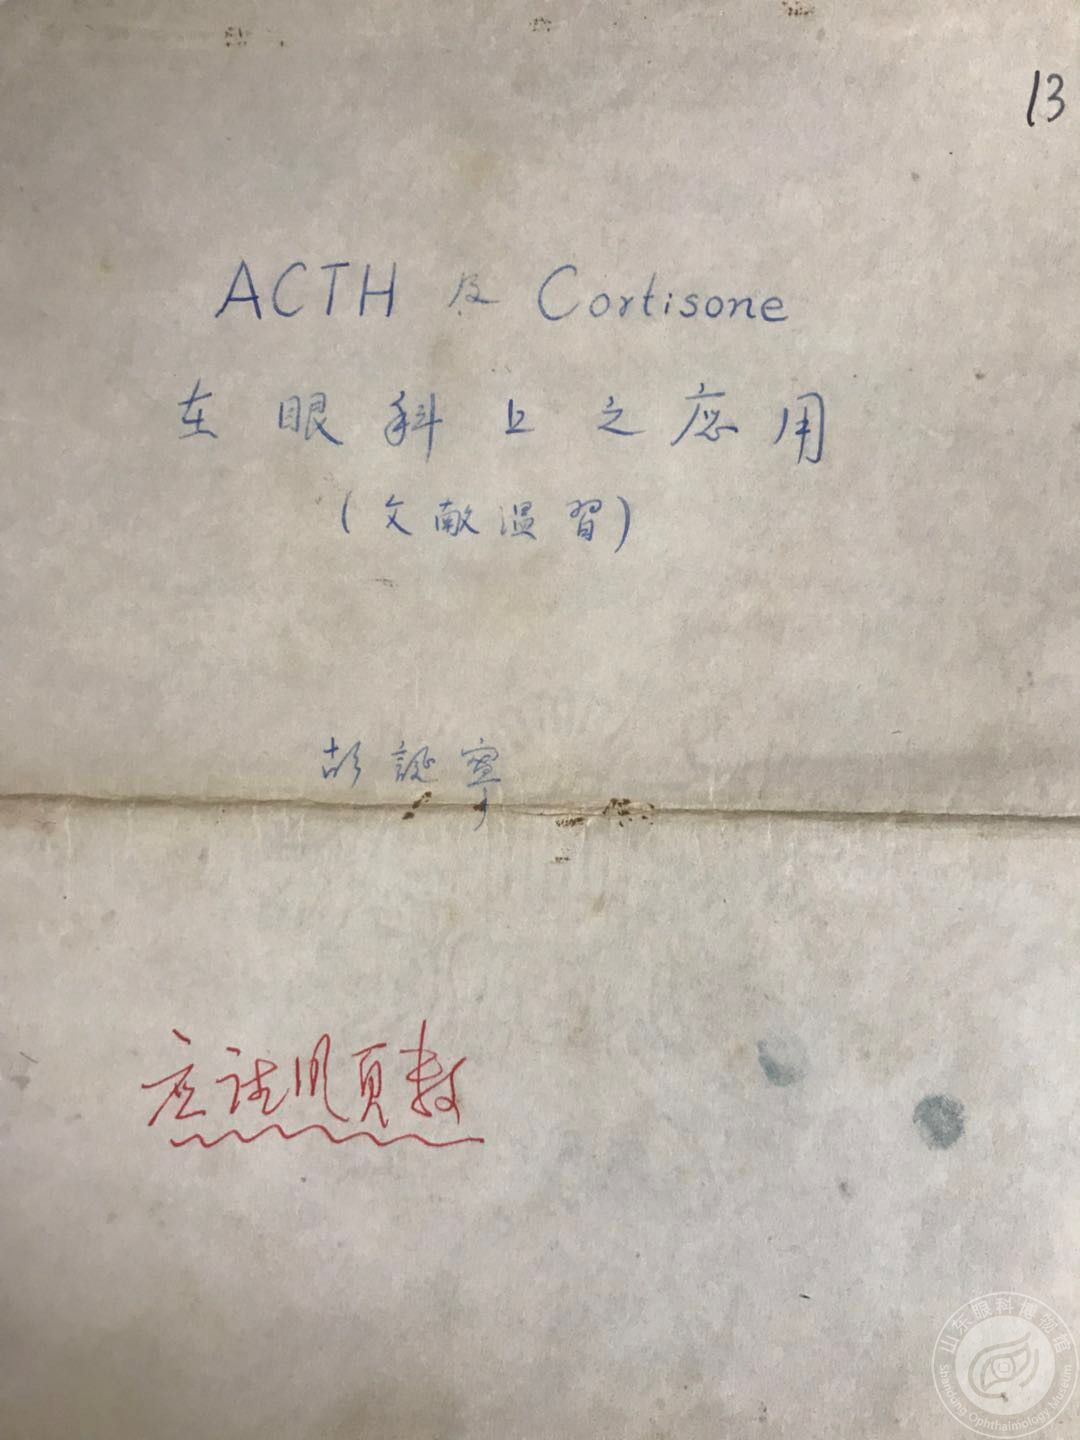 13
ACTH 及 Cortisone
在眼科上之應用
(文献温習)
胡誕寧
应注明页数
山东眼科博物馆
Shandong Ophthalmology Museum